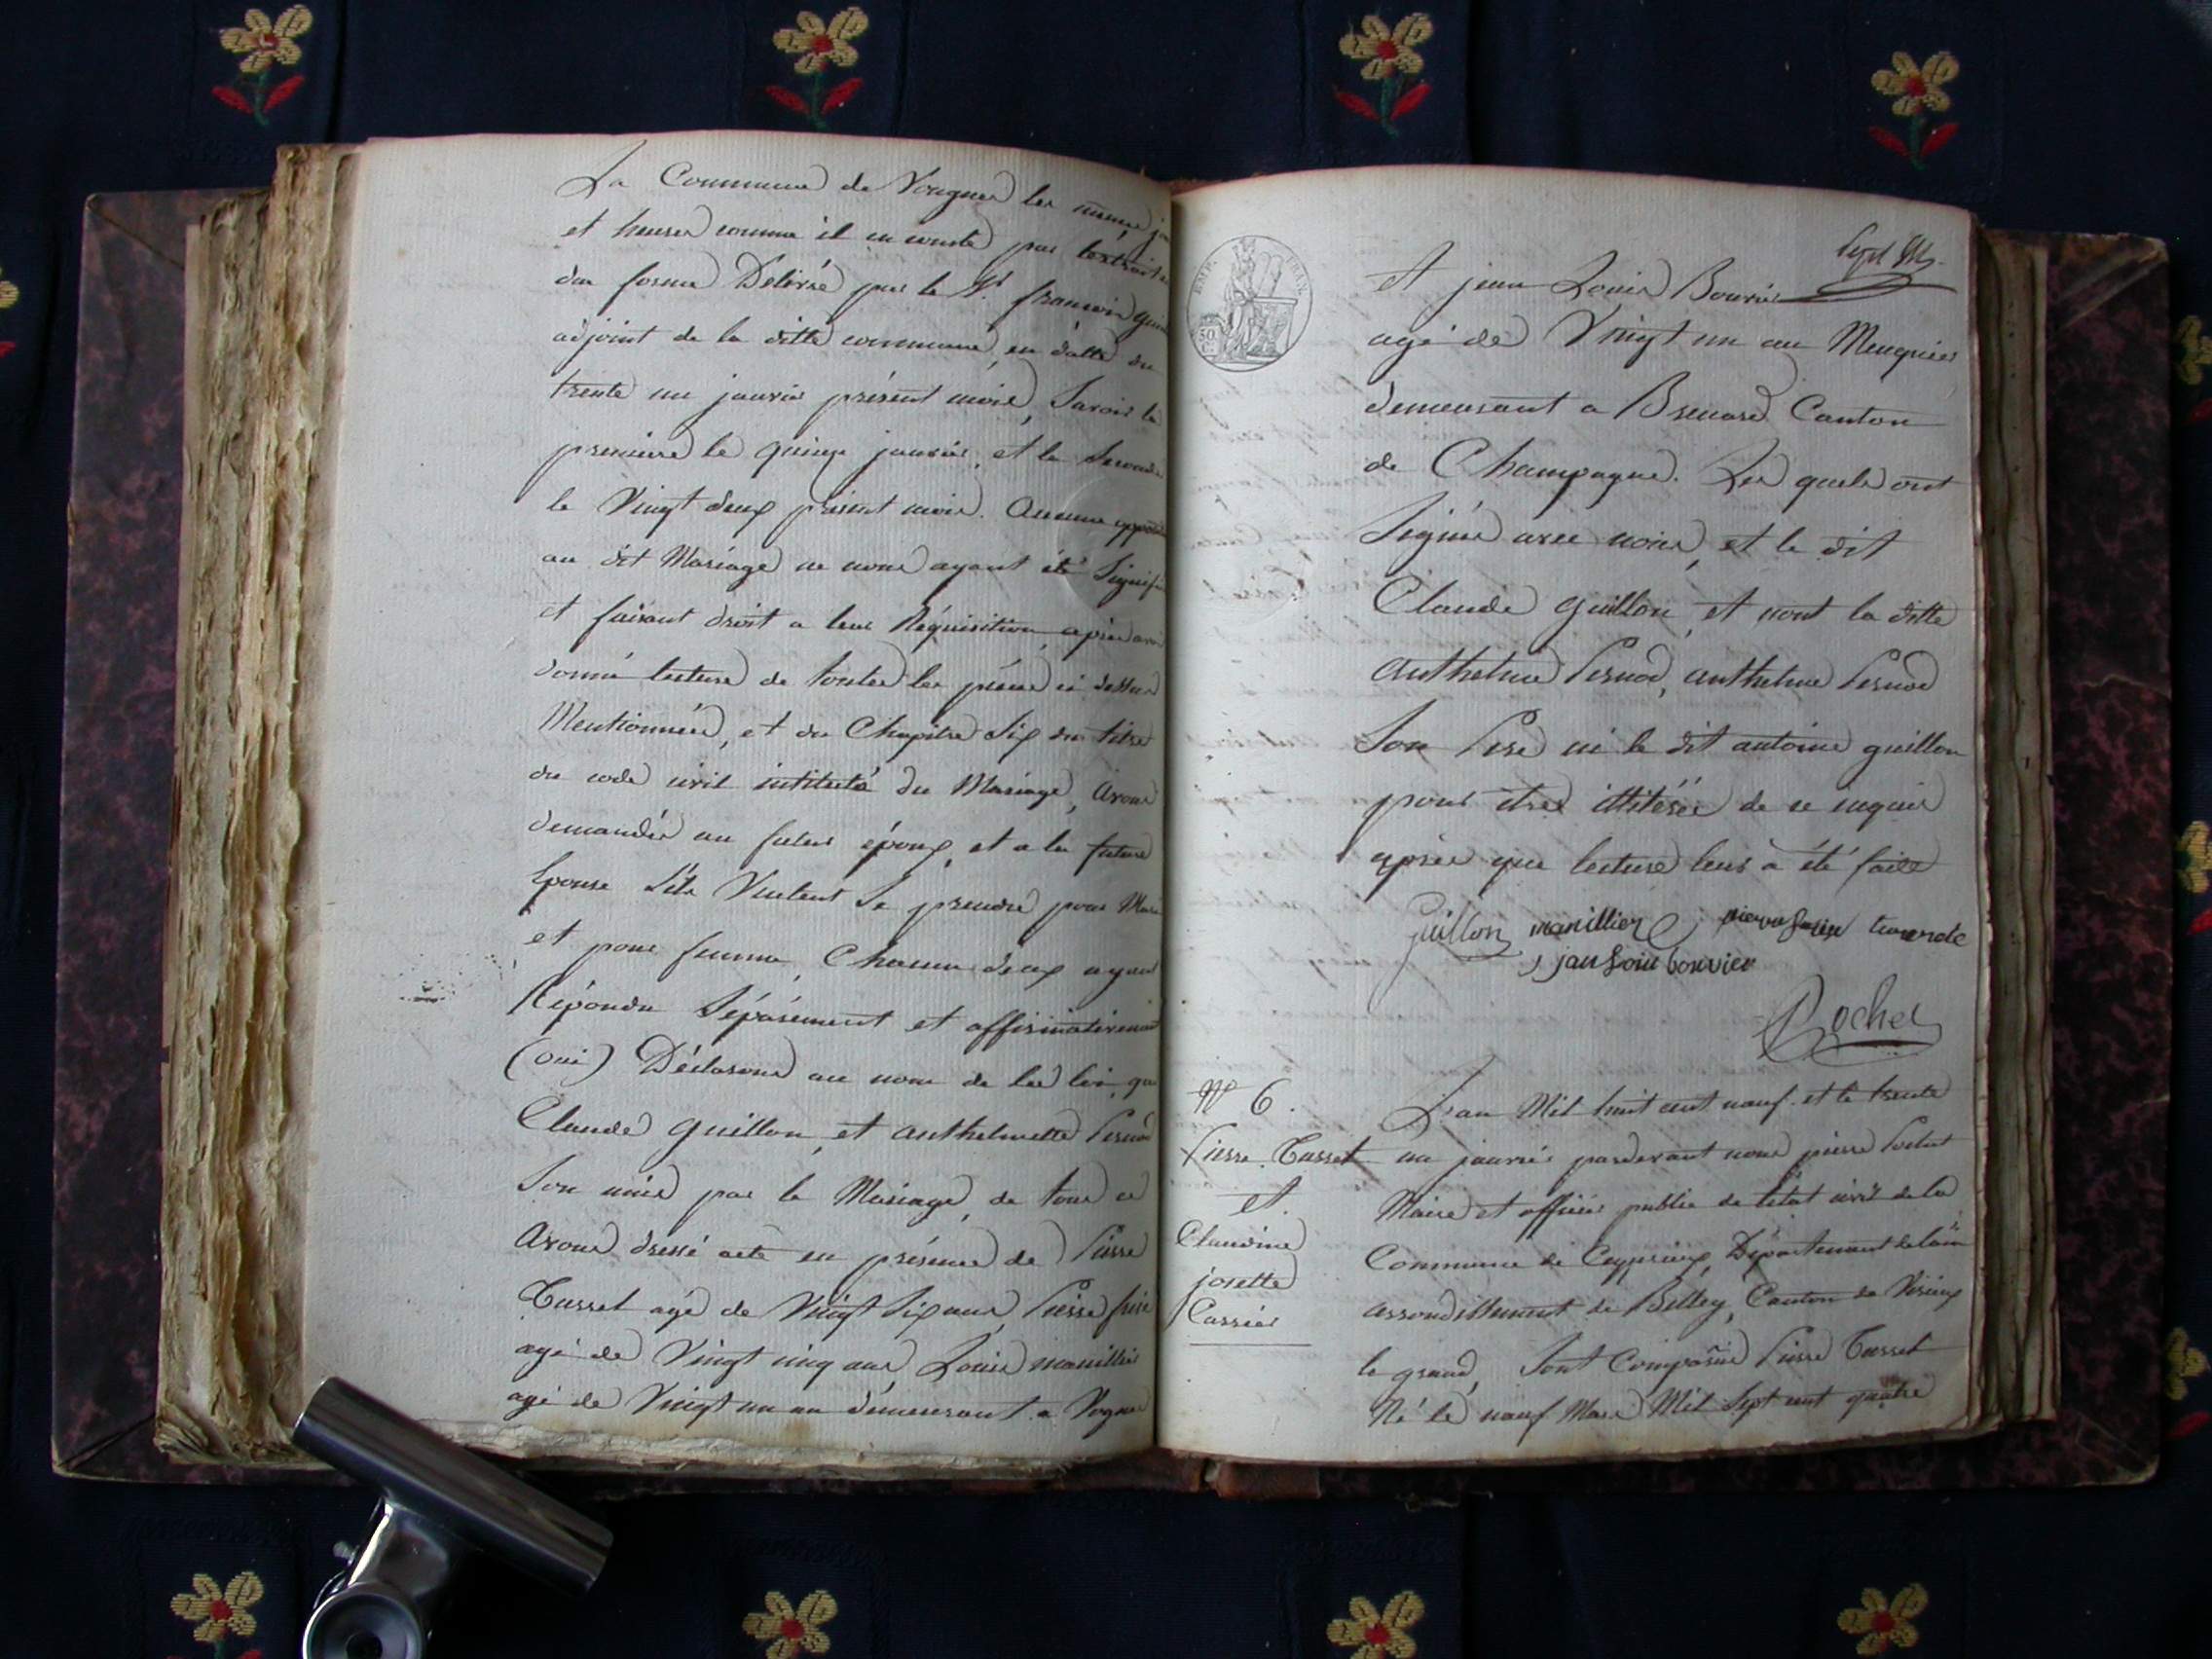 La Commune de Vongnes les meme
et heures comme il en conste par lextrait
du forme Délivré par le Sr. francois
adjoint de la ditte commune, en datte du
trente un janvier présent mois, Savoir la
premiere le quinze janvier, et la Seconde
le Vingt deux présent mois. Aucune
au dit Mariage ne nous ayant été
et faisant droit a leur Réquisition, apres
donné lecture de toutes les pieces ci dessus
Mentionnées, et du Chapitre Six du titre
du code civil intitulé du Mariage, Avons
demandés au futur époux, et a la future
Epouse S'ils Veulent Se prendre pour
et pour femme, Chacun deux ayant
Répondu Séparément et affirmativement
(oui) Déclarons au nom de la loi, que
Claude Guillon, et Anthelmette Pernod
Son unis par le Mariage, de tout ce
Avons dressé acte en présence de Pierre
Tusset agé de Vingt Six ans, Pierre
agé de Vingt cinq ans, Louis manillier
agé de Vingt un an demeurant a
EMP. FRAN.
50
C.
Et jean Louis Bouvier
agé de Vingt un an Meugnier
demeurant a Brenard Canton
de Champagne. Les quels ont
Signés avec nous, et le dit
Claude Guillon, et nont la ditte
Anthelme Pernod, anthelme Pernod
Son Pere ni le dit antoine guillon
pour etres illitérés de ce enquis
après que lecture leur à été faite
Guillon manillier
jan Loui bouvier
Rochet
No 6.
Pierre Tusset
et
Claudine
josette
Carrier
L'an Mil huit cent neuf. et le trente
un janvier pardevant nous pierre
Maire et officier public de létat civil de la
Commune de Ceyzerieux, Département de lain
arrondissement de Belley, Canton de Virieux
le grand, Sont Comparus Pierre Tusset
Né le neuf Mars Mil Sept cent quatre